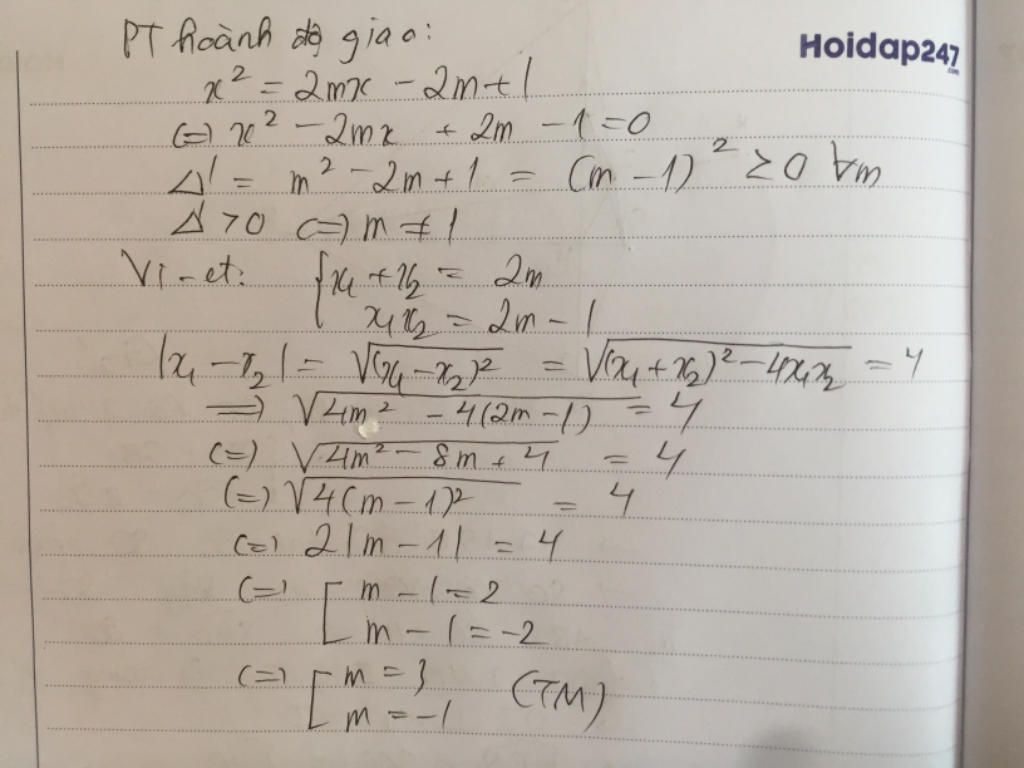 PT hoành độ giao:
Hoidap247
.com
x² = 2mx - 2m + 1
(=) x² - 2mx + 2m - 1 = 0
Δ' = m² - 2m + 1 = (m - 1)² ≥ 0 ∀m
Δ > 0 (=) m ≠ 1
Vi-et: { x₁ + x₂ = 2m
x₁x₂ = 2m - 1
|x₁ - x₂| = √(x₁ - x₂)² = √(x₁ + x₂)² - 4x₁x₂ = 4
=) √4m² - 4(2m - 1) = 4
(=) √4m² - 8m + 4 = 4
(=) √4(m - 1)² = 4
(=) 2|m - 1| = 4
(=) [ m - 1 = 2
m - 1 = -2
(=) [ m = 3 (TM)
m = -1